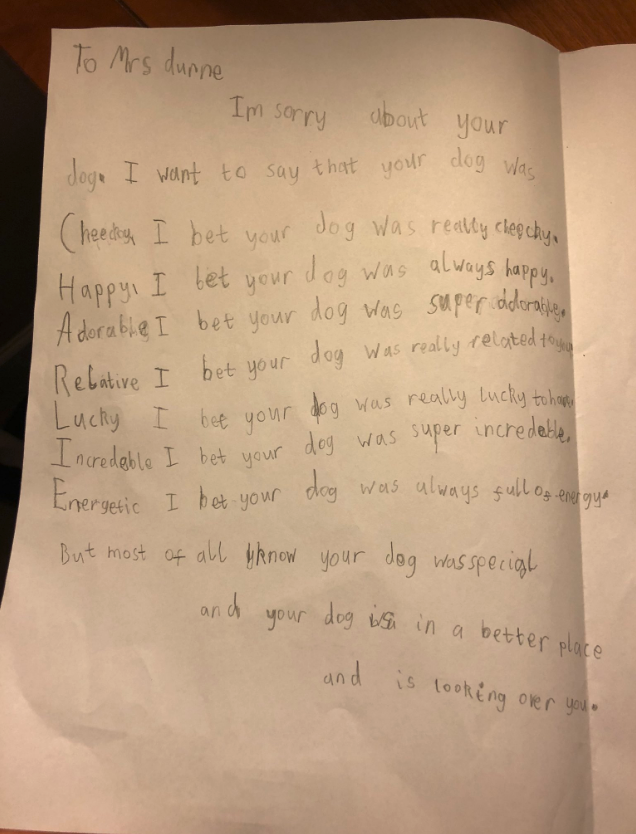 To Mrs dunne
Im sorry about your
dog. I want to say that your dog was
Cheecky, I bet your dog was really cheechy.
Happy, I bet your dog was always happy.
Adorable, I bet your dog was super adorable.
Relative I bet your dog was really related to you
Lucky I bet your dog was really lucky to have
Incredable I bet your dog was super incredeble.
Energetic I bet your dog was always full of energy.
But most of all I know your dog was special
and your dog is in a better place
and is looking over you.